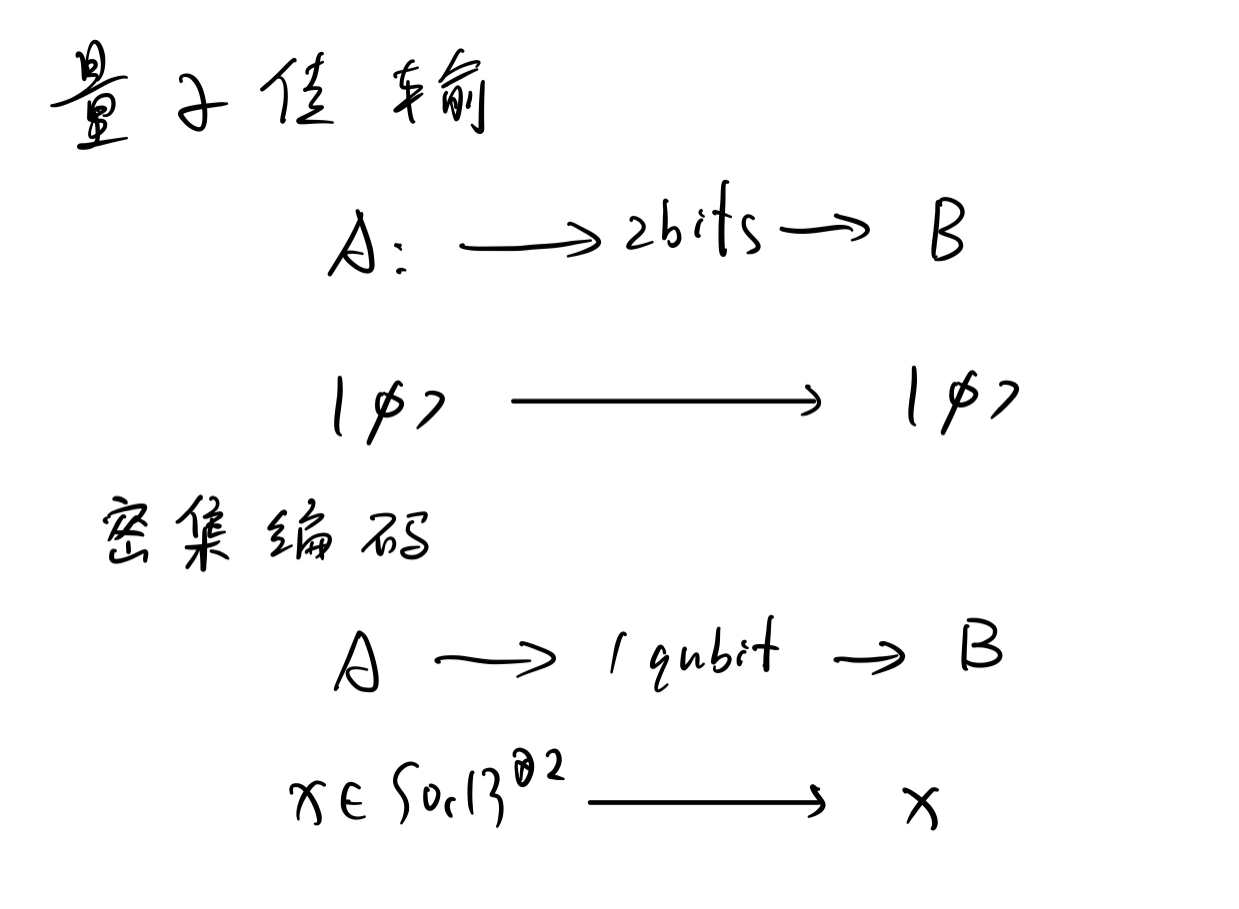 量子传输
A: → 2bits → B
|φ> → |φ>
密集编码
A → 1 qubit → B
x∈{0,1}^⊗2 → x